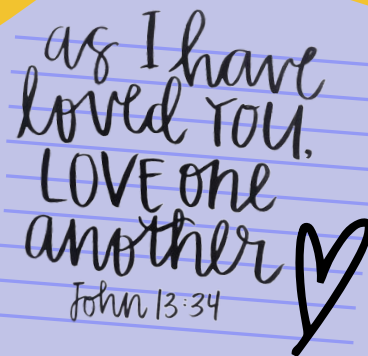 as I have
loved you,
LOVE one
another
John 13:34